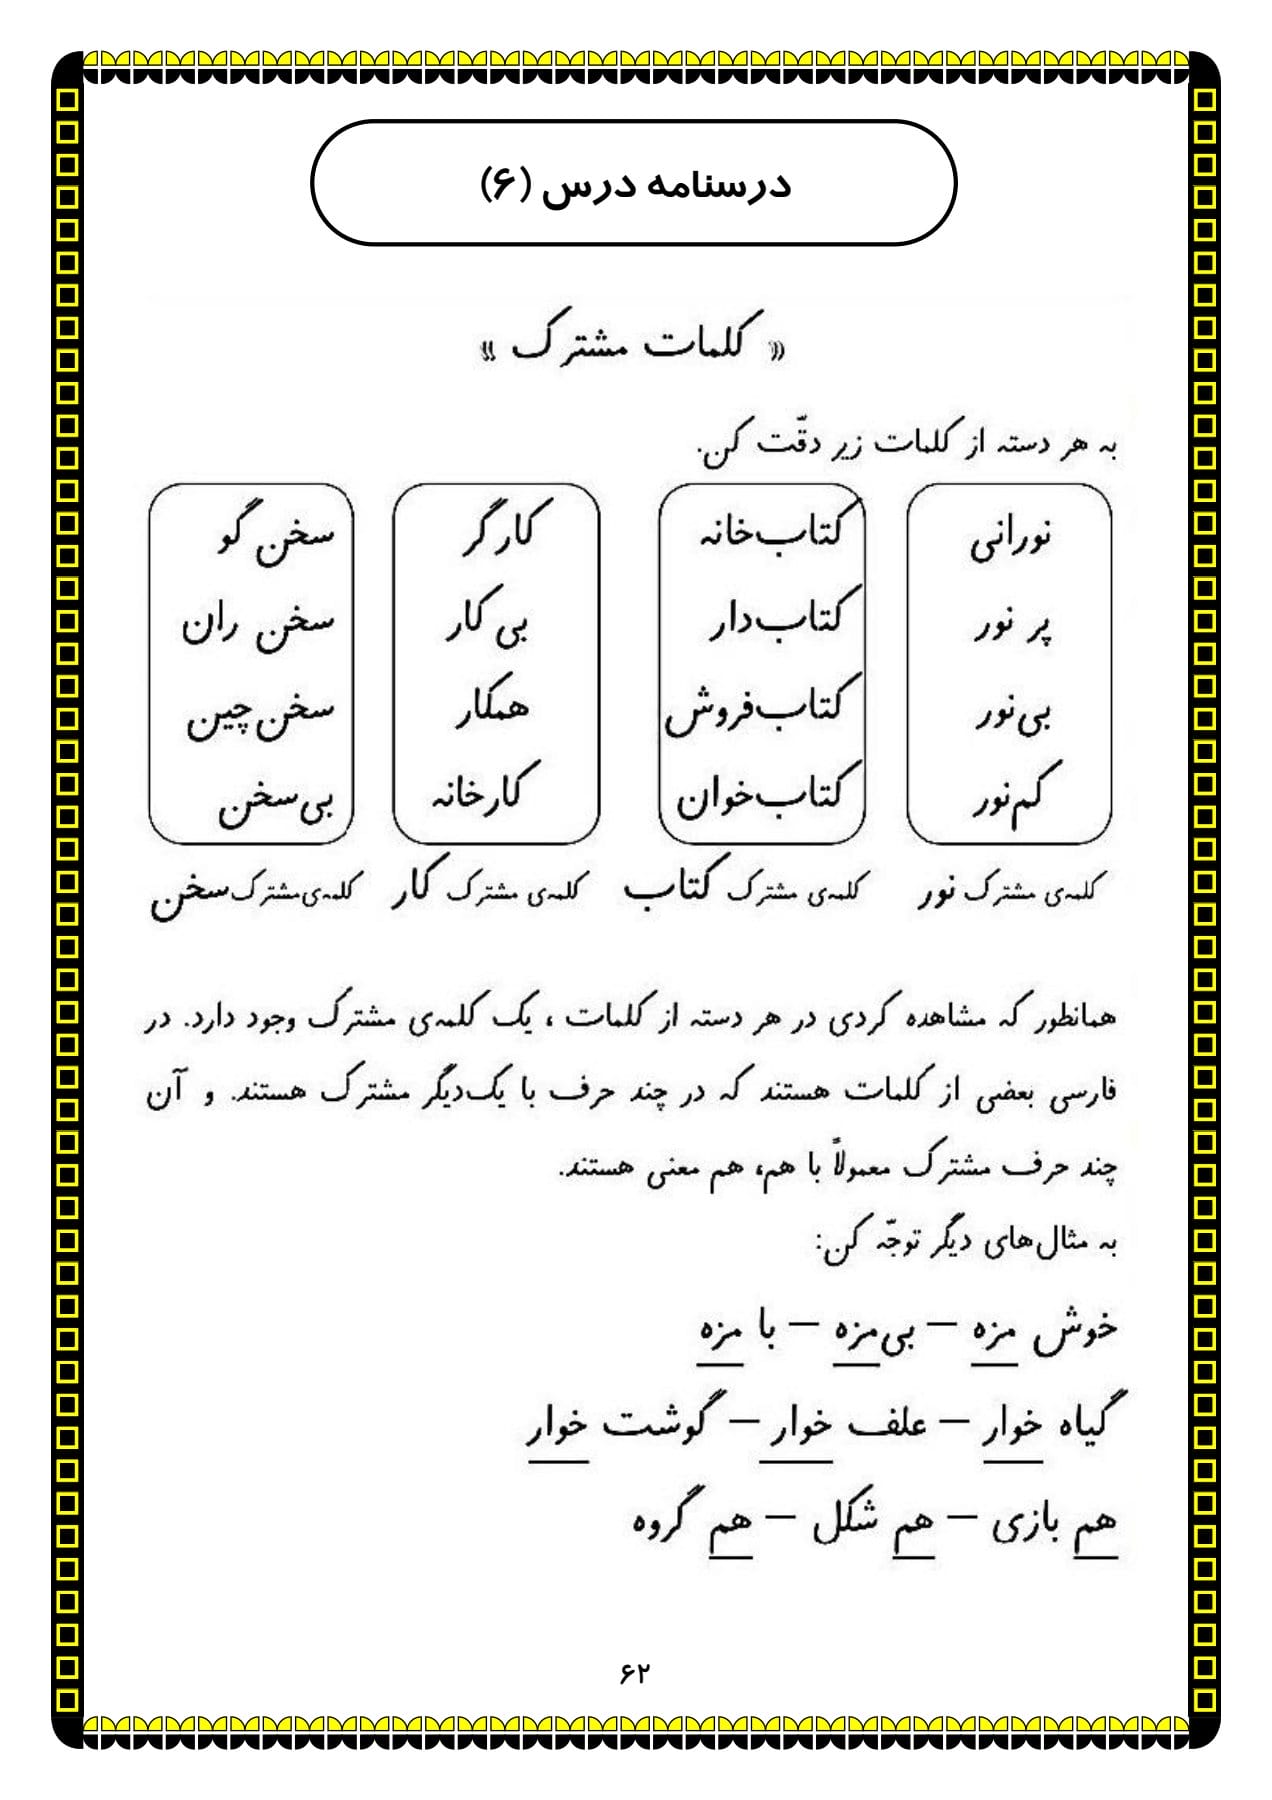 درسنامه درس (۶)
« کلمات مشترک »
به هر دسته از کلمات زیر دقّت کن.
نورانی
پر نور
بی‌نور
کم‌نور
کلمه‌ی مشترک نور
کتاب‌خانه
کتاب‌دار
کتاب‌فروش
کتاب‌خوان
کلمه‌ی مشترک کتاب
کارگر
بی کار
همکار
کارخانه
کلمه‌ی مشترک کار
سخن گو
سخن ران
سخن‌چین
بی‌سخن
کلمه‌ی مشترک سخن
همانطور که مشاهده کردی در هر دسته از کلمات ، یک کلمه‌ی مشترک وجود دارد. در
فارسی بعضی از کلمات هستند که در چند حرف با یک‌دیگر مشترک هستند. و آن
چند حرف مشترک معمولاً با هم، هم معنی هستند.
به مثال‌های دیگر توجّه کن:
خوش مزه – بی‌مزه – با مزه
گیاه خوار – علف خوار – گوشت خوار
هم بازی – هم شکل – هم گروه
۶۲